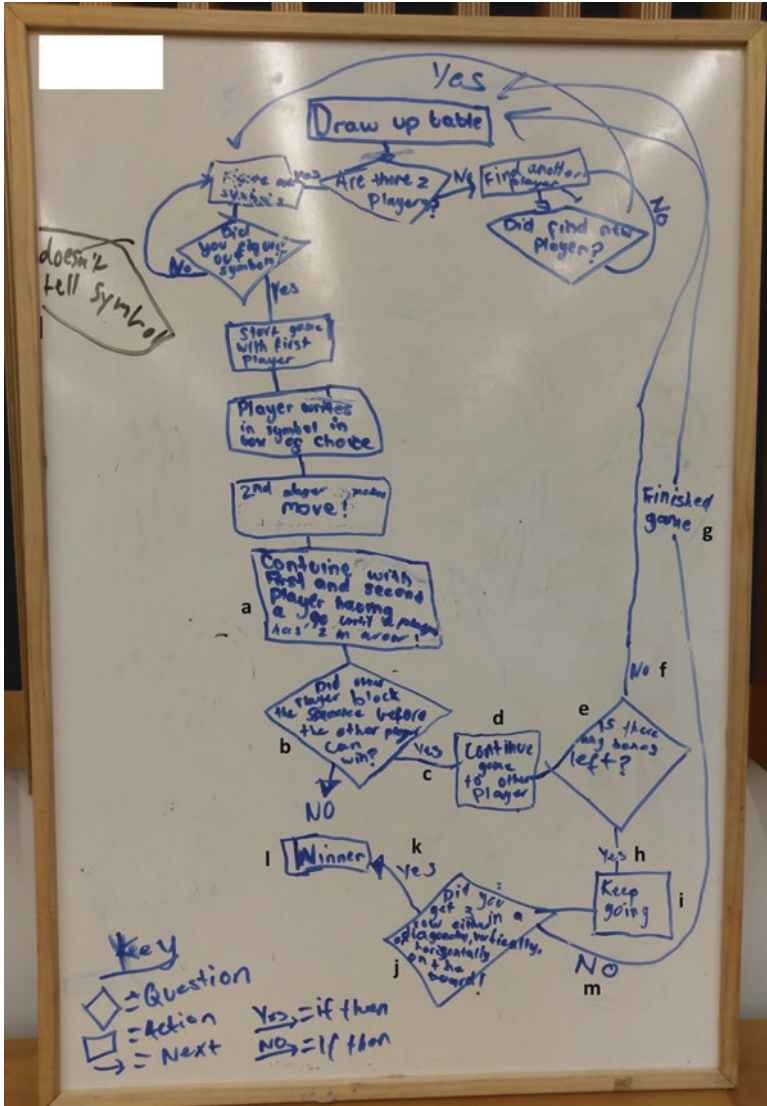 Yes
Draw up table
Figure out
symbols
Yes
Are there 2
players?
No
Find another
player
Did find new
player?
No
Did
you figure
out
symbols
No
Yes
doesn't
tell symbol
Start game
with first
player
Player writes
in symbol in
box of choice
2nd player makes
move!
a
Contuine with
First and second
player having
a go until a player
has 2 in a row!
b
Did other
player block
the sequence before
the other player
can
win?
Yes
c
NO
d
Continue
game
to other
Player
e
Is there
any boxes
left?
No
f
Finished
game
g
Yes
h
Keep
going
i
j
Did you
get 3 in a
row either
diagonally, vertically,
or horizontally
on the
board!
Yes
k
l
Winner
NO
m
Key
= Question
= Action
= Next
Yes = if then
NO = If then